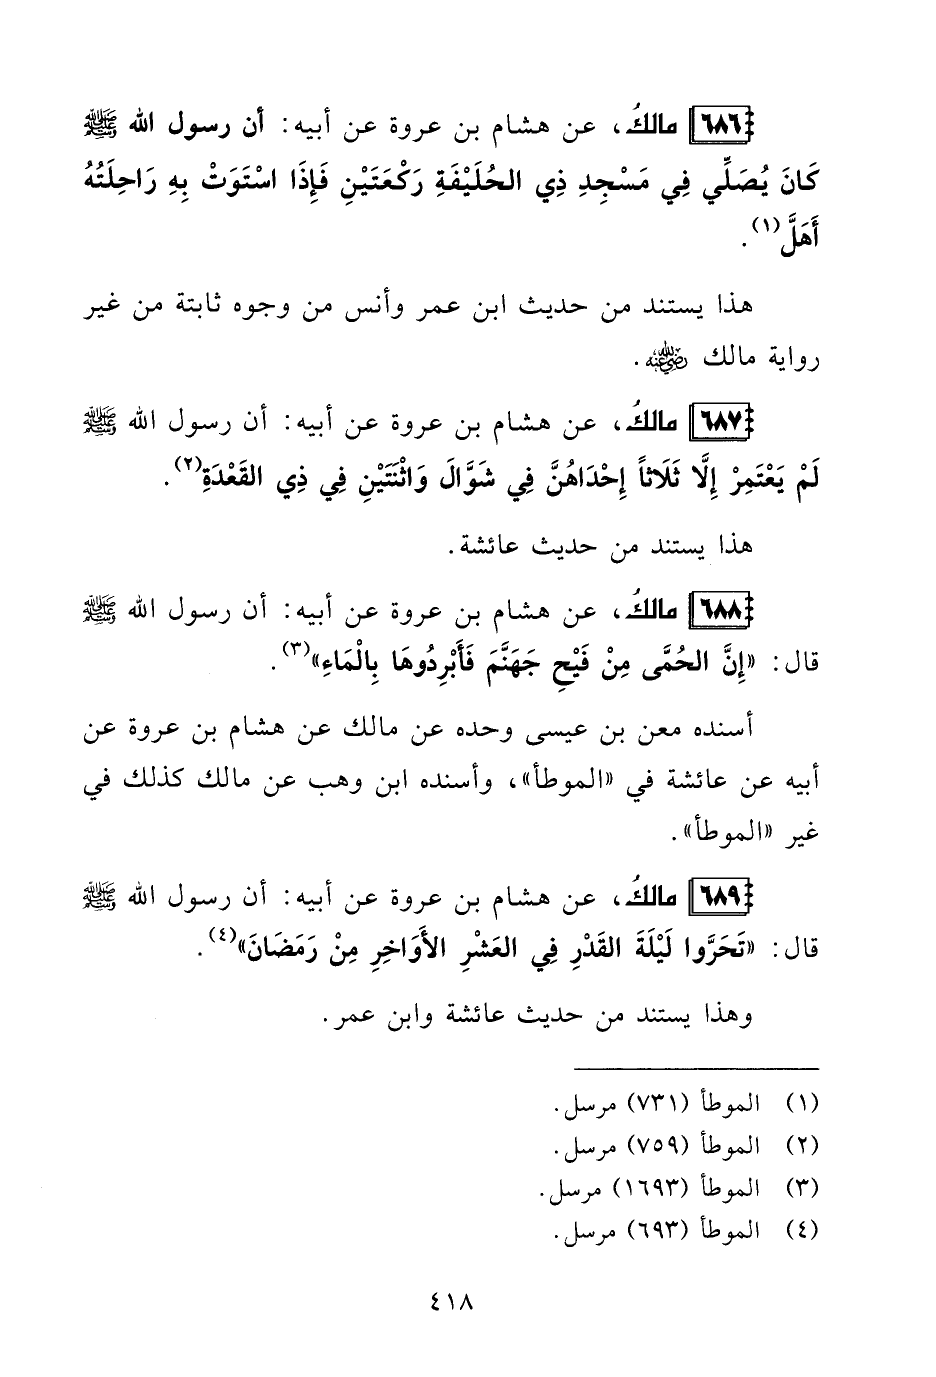 ٦٨٦ مالكُ، عن هشام بن عروة عن أبيه: أن رسول الله ﷺ
كَانَ يُصَلِّي فِي مَسْجِدِ ذِي الحُلَيْفَةِ رَكْعَتَيْنِ فَإِذَا اسْتَوَتْ بِهِ رَاحِلَتُهُ
أَهَلَّ(١).
هذا يستند من حديث ابن عمر وأنس من وجوه ثابتة من غير
رواية مالك رضي الله عنه.
٦٨٧ مالكُ، عن هشام بن عروة عن أبيه: أن رسول الله ﷺ
لَمْ يَعْتَمِرْ إِلَّا ثَلَاثاً إِحْدَاهُنَّ فِي شَوَّالَ وَاثْنَتَيْنِ فِي ذِي القَعْدَةِ(٢).
هذا يستند من حديث عائشة.
٦٨٨ مالكُ، عن هشام بن عروة عن أبيه: أن رسول الله ﷺ
قال: «إِنَّ الحُمَّى مِنْ فَيْحِ جَهَنَّمَ فَأَبْرِدُوهَا بِالْمَاءِ»(٣).
أسنده معن بن عيسى وحده عن مالك عن هشام بن عروة عن
أبيه عن عائشة في «الموطأ»، وأسنده ابن وهب عن مالك كذلك في
غير «الموطأ».
٦٨٩ مالكُ، عن هشام بن عروة عن أبيه: أن رسول الله ﷺ
قال: «تَحَرَّوا لَيْلَةَ القَدْرِ فِي العَشْرِ الأَوَاخِرِ مِنْ رَمَضَانَ»(٤).
وهذا يستند من حديث عائشة وابن عمر.
(١) الموطأ (٧٣١) مرسل.
(٢) الموطأ (٧٥٩) مرسل.
(٣) الموطأ (١٦٩٣) مرسل.
(٤) الموطأ (٦٩٣) مرسل.
٤١٨